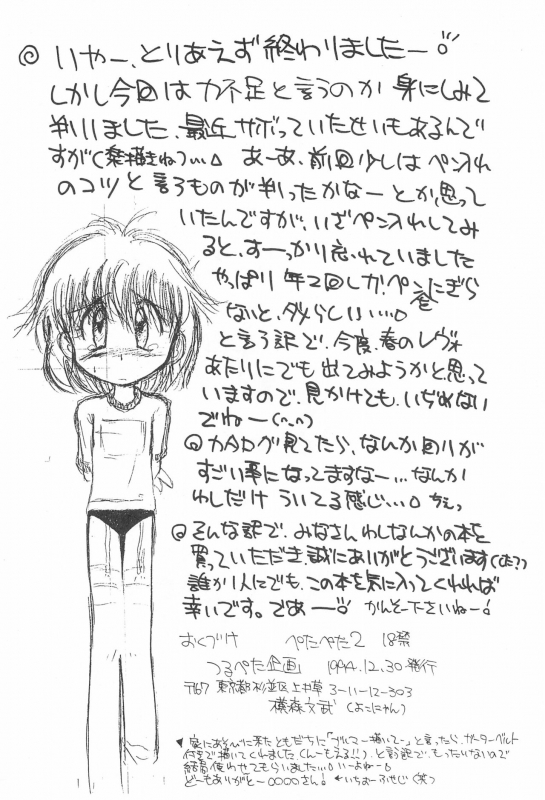 ◎ いやー、とりあえず終わりましたー
しかし今回は力不足と言うのが身にしみて
判りました、最近サボっていたせいもあるんで
すが(発描きね)… あーあ、前回少しはペン入れ
のコツと言うものが判ったかなーとか思って
いたんですが、いざペン入れしてみ
ると、すーっかり忘れていました
やっぱり年2回しかペンをにぎら
ないと、ダメらしい…
と言う訳で、今度、春のレヴォ
あたりにでも出てみようかと思って
いますので、見かけても、いぢめない
でねー(^_^)
◎ カタログ見てたら、なんか回りが
すごい事になってますなー…なんか
わしだけういてる感じ… ちぇっ
◎ そんな訳で、みなさんわしなんかの本を
買っていただき、誠にありがとうございます
誰か1人にでも、この本を気に入ってくれれば
幸いです。であー かんそー下さいねー
おくづけ ぺたぺた2 18禁
つるぺた企画 1994.12.30.発行
〒167 東京都杉並区上井草3-11-12-303
横森文武 (よこにゃん)
▼家にあそびに来たともだちに「ブルマー描いてー」と言ったら、ガーターベルト
付きで描いてくれました(んーもえる!!)、と言う訳で、もったいないので
結局使わせてもらいました… いーよねー
どーもありがとー○○○○さん! ←いちおーふせじ(笑)